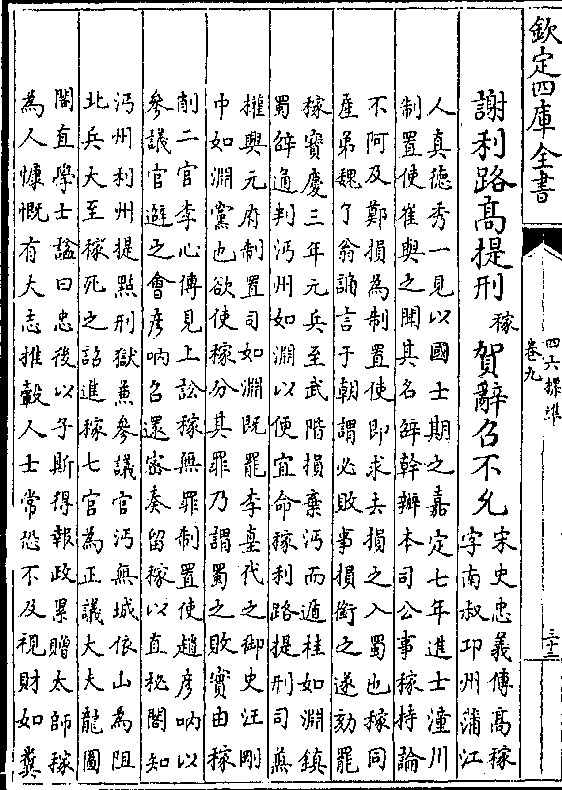 欽定四庫全書
四六標準
卷九
謝利路髙提刑稼賀辭召不允
宋史忠義傳髙稼
字南叔卭州蒲江
人真德秀一見以國士期之嘉定七年進士潼川
制置使崔與之聞其名辟幹辦本司公事稼持論
不阿及鄭損為制置使即求去損之入蜀也稼同
産弟魏了翁誦言于朝謂必敗事損銜之遂劾罷
稼寳慶三年元兵至武階損棄沔而遁桂如淵鎮
蜀辟通判沔州如淵以便宜命稼利路提刑司兼
權興元府制置司如淵既罷李𡌴代之御史汪剛
中如淵黨也欲使稼分其罪乃謂蜀之敗實由稼
削二官李心傳見上訟稼無罪制置使趙彦吶以
參議官避之會彦吶召還密奏留稼以直秘閣知
沔州利州提點刑獄兼參議官沔無城依山為阻
北兵大至稼死之詔進稼七官為正議大夫龍圖
閣直學士諡曰忠後以子斯得報政累贈太師稼
為人慷慨有大志推轂人士常恐不及視財如糞